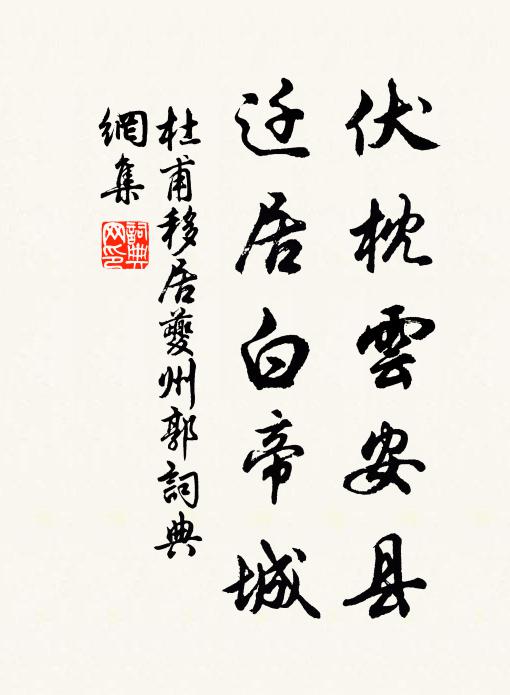 伏枕雲安县
迁居白帝城
杜甫移居夔州郭詞典
網集
詞典
网印